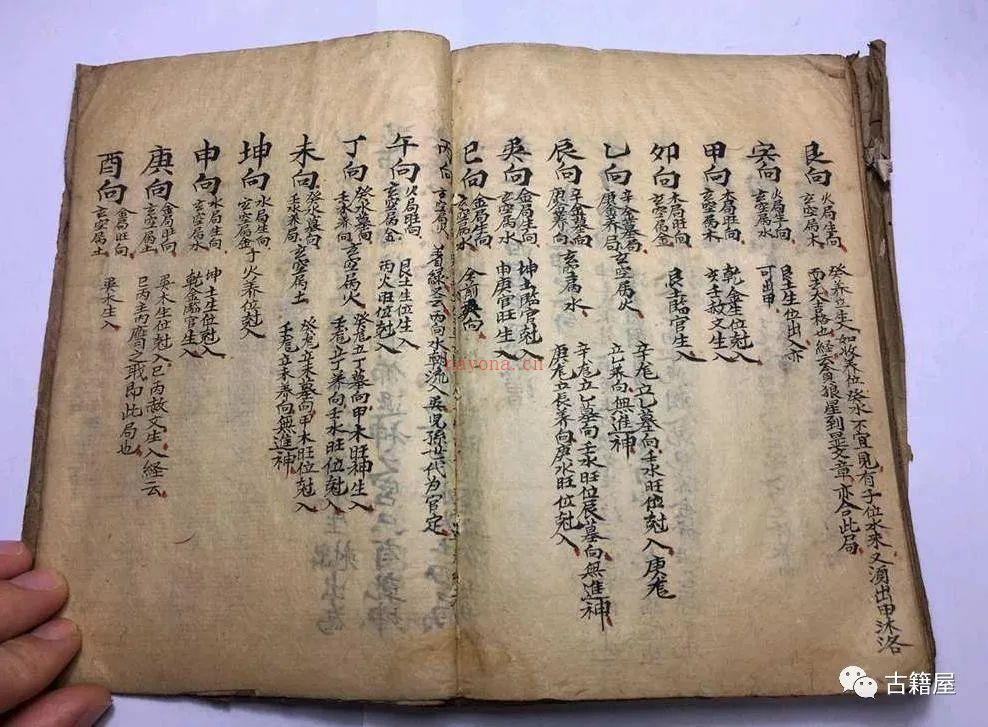 艮向 火局生向 玄空属木 癸養立生入如收養位癸水不宜見有子位水來又須出甲沐浴
而大吉格也経云貪狼星到是文章亦合此局
寅向 火局生向 玄空属水 艮土生位出入亦
可出甲
甲向 木局旺向 玄空属木 乾金生位尅入
亥壬救文生入
卯向 木局旺向 玄空属金 艮土臨官生入
乙向 辛金墓局 庚養局 玄空属火 辛庬立乙墓向壬水旺位尅入庚庬
立乙养向無進神
辰向 辛金墓向 庚養向 玄空属水 辛庬立乙墓向壬水旺位辰墓向無進神
庚庬立辰养向庚水旺位尅入
巽向 金局生向 玄空属水 坤土臨官尅入
申庚官旺生入
巳向 金局生向 玄空属水 全前巽向
丙向 玄空属火 若緑云丙向水朝流 兒孫世代为官定
午向 火局旺向 玄空属金 艮土生位生入
丙火旺位尅入
丁向 癸火墓向 壬养向 玄空属火 癸庬立丁墓向甲木旺神生入
壬庬立丁养向壬水旺位尅入
未向 癸火墓向 壬水养局 玄空属土 癸庬立未墓向甲木旺位尅入
壬庬立未养向無進神
坤向 水局生向 玄空属金 子火养位尅入
申向 水局生向 玄空属水 坤土生位尅入
乾金臨官生入
庚向 金局旺向 玄空属土 巽木生位尅入巳丙救文生入経云
巳丙主丙應之哉即此局也
酉向 金局旺向 玄空属土 巽水生入
nayona.cn
古籍屋